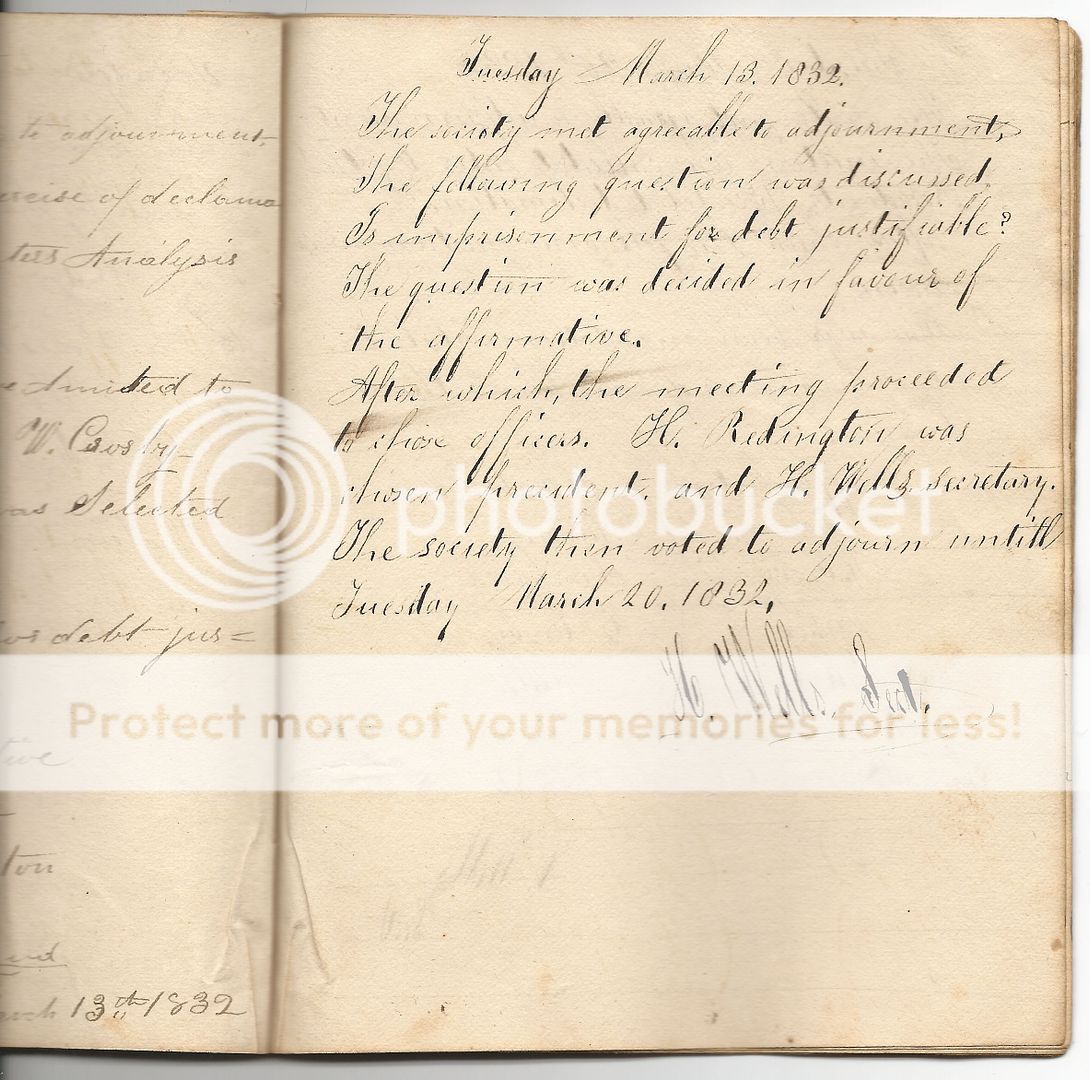 to adjournment,
of declama
Analysis
to
W. Crosby
was Selected
debt jus=
13th 1832
Tuesday March 13. 1832.
The society met agreeable to adjournment,
The following question was discussed.
Is imprisonment for debt justifiable?
The question was decided in favour of
the affirmative.
After which, the meeting proceeded
to chose officers. H. Redington was
chosen precident, and H. Wells secretary.
The society then voted to adjourn untill
Tuesday March 20. 1832.
H. Wells, Sect.
photobucket
Protect more of your memories for less!